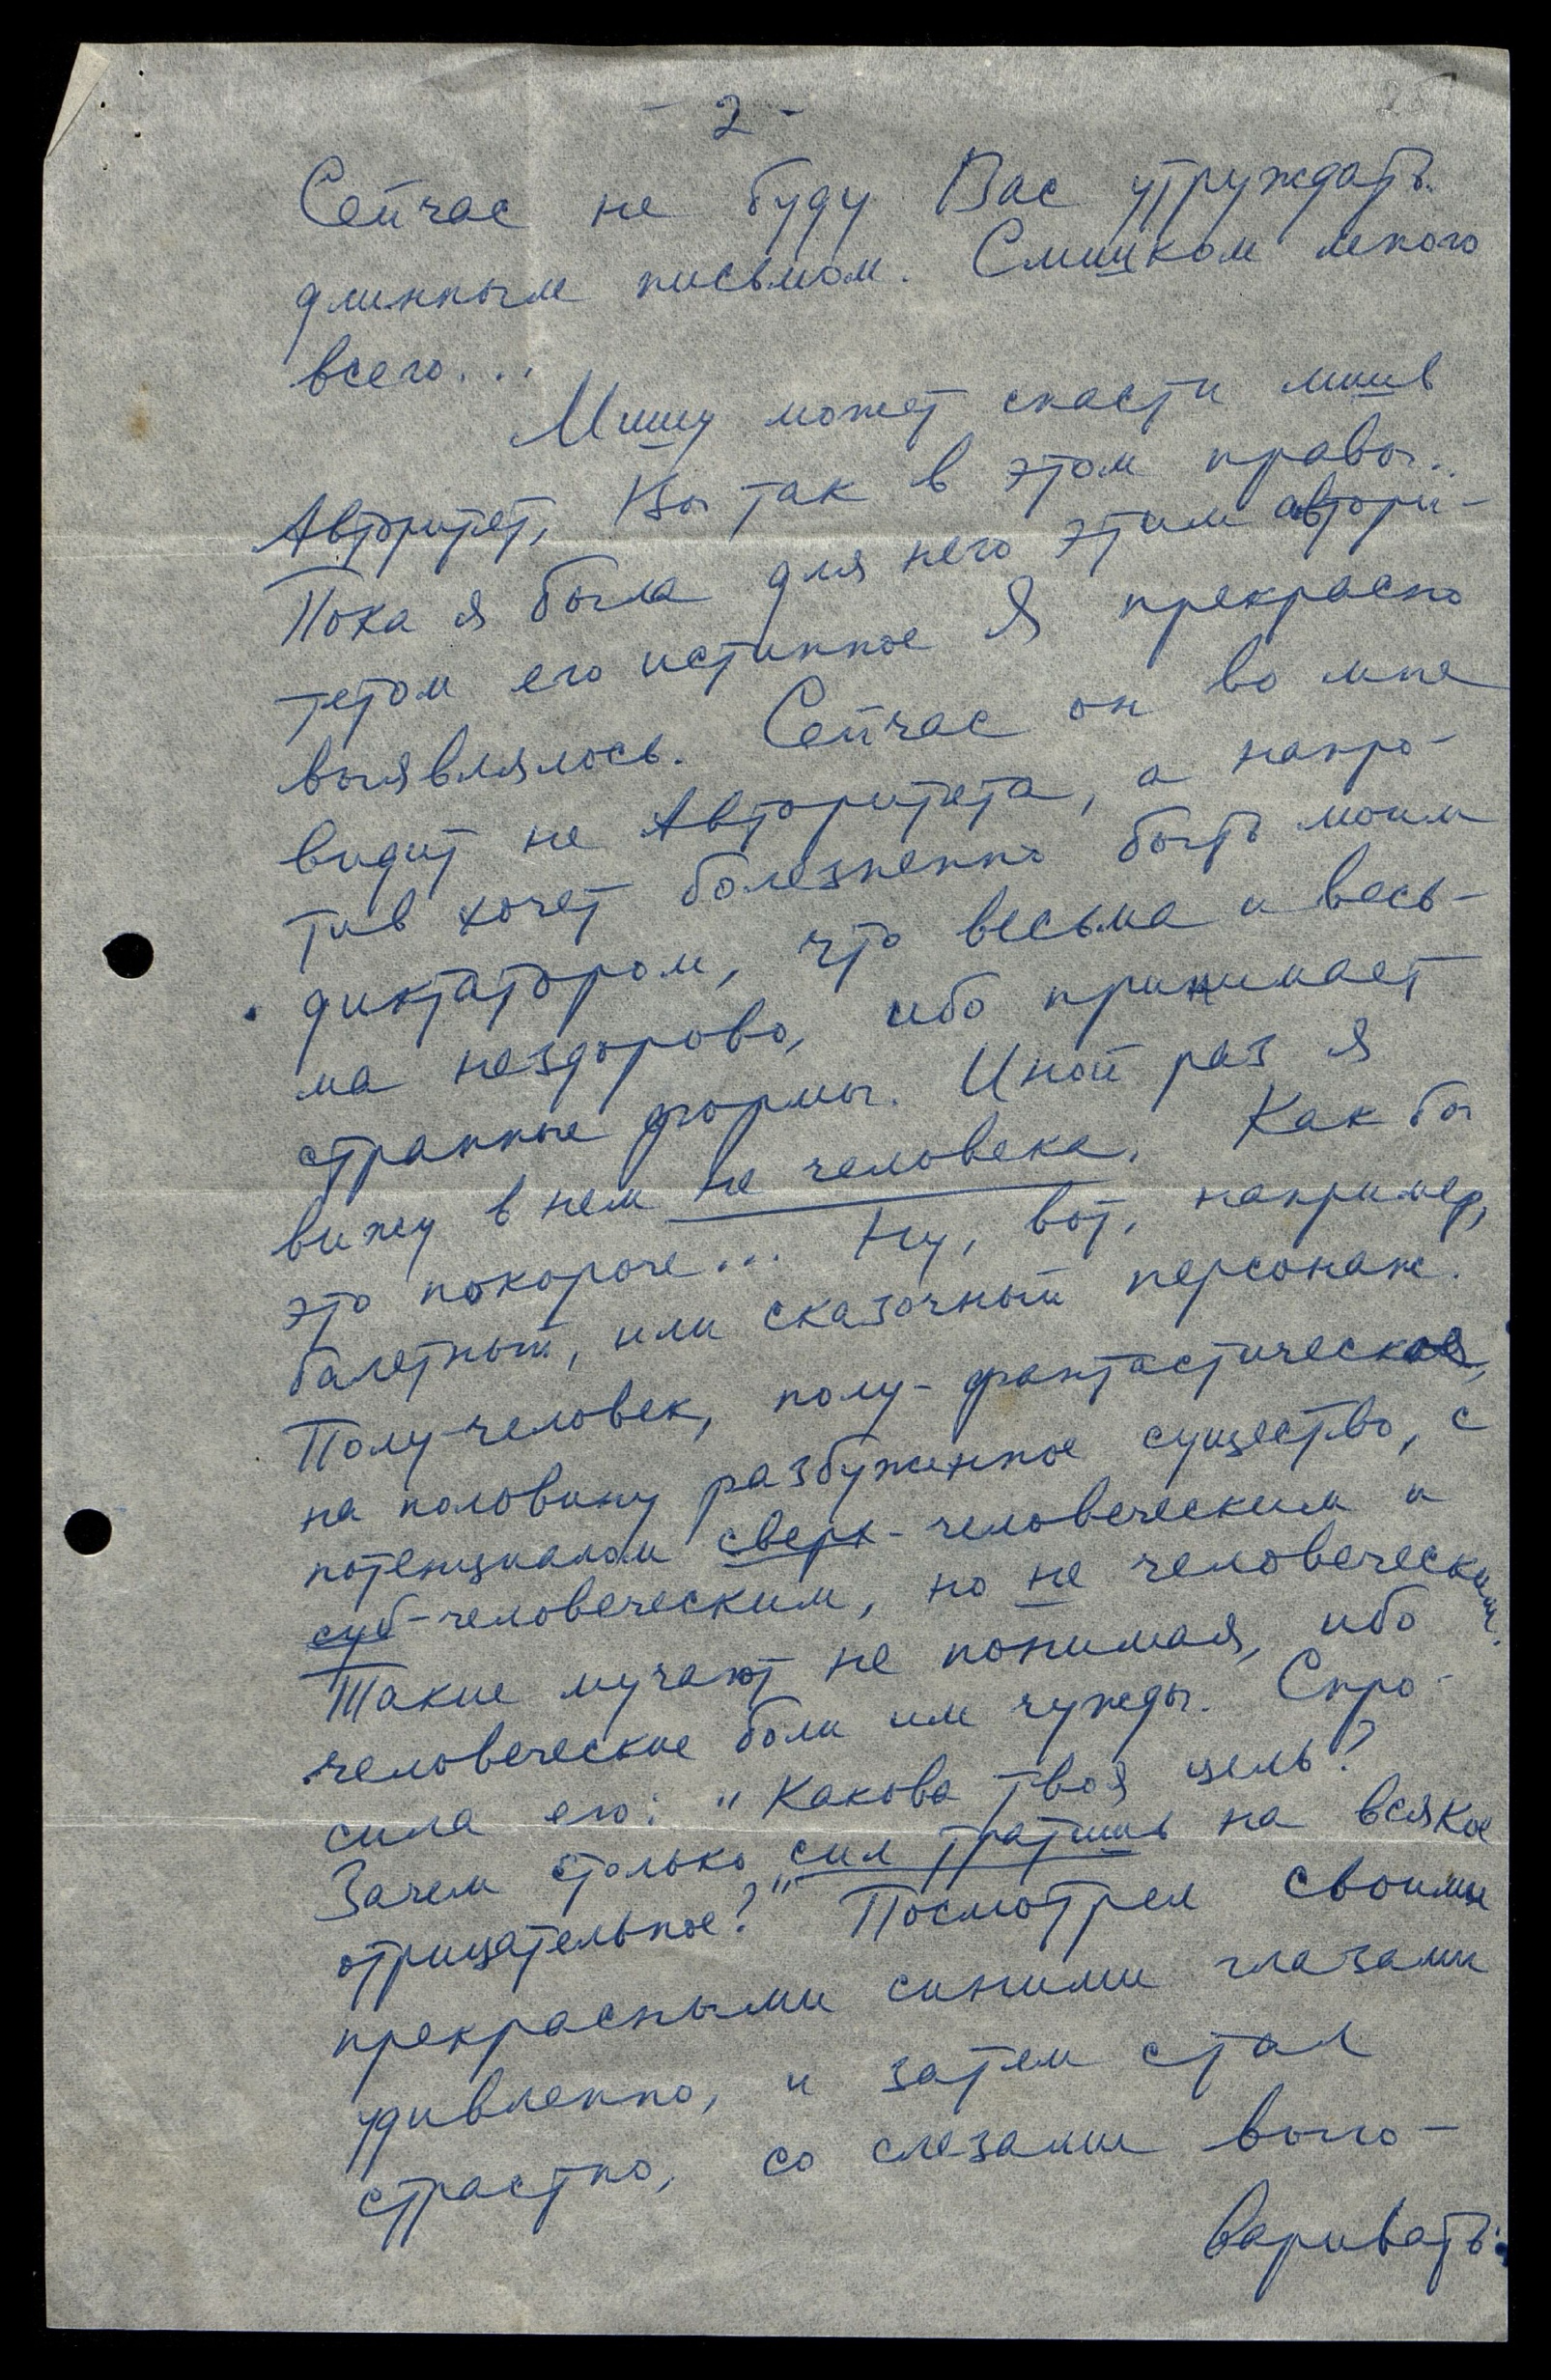 - 2 -
Сейчас не буду Вас утруждать
длинным письмом. Слишком много
всего...
Мишу может спасти лишь
Авторитет, Вы так в этом правы.
Пока я была для него этим автори-
тетом его истинное Я прекрасно
выявлялось. Сейчас он во мне
видит не Авторитета, а напро-
тив хочет болезненно быть моим
диктатором, что весьма и весь-
ма нездорово, ибо принимает
странные формы. Иной раз я
вижу в нем не человека. Как бы
это покороче... Ну, вот, например,
балетный, или сказочный персонаж.
Получеловек, полу-фантастическое,
на половину разбуженное существо, с
потенциалом сверх-человеческим и
суб-человеческим, но не человеческим.
Такие мучают не понимая, ибо
человеческие боли им чужды. Спро-
сила его: "Какова твоя цель?
Зачем столько сил тратишь на всякое
отрицательное?" Посмотрел своими
прекрасными синими глазами
удивленно, и затем стал
страстно, со слезами выго-
варивать: